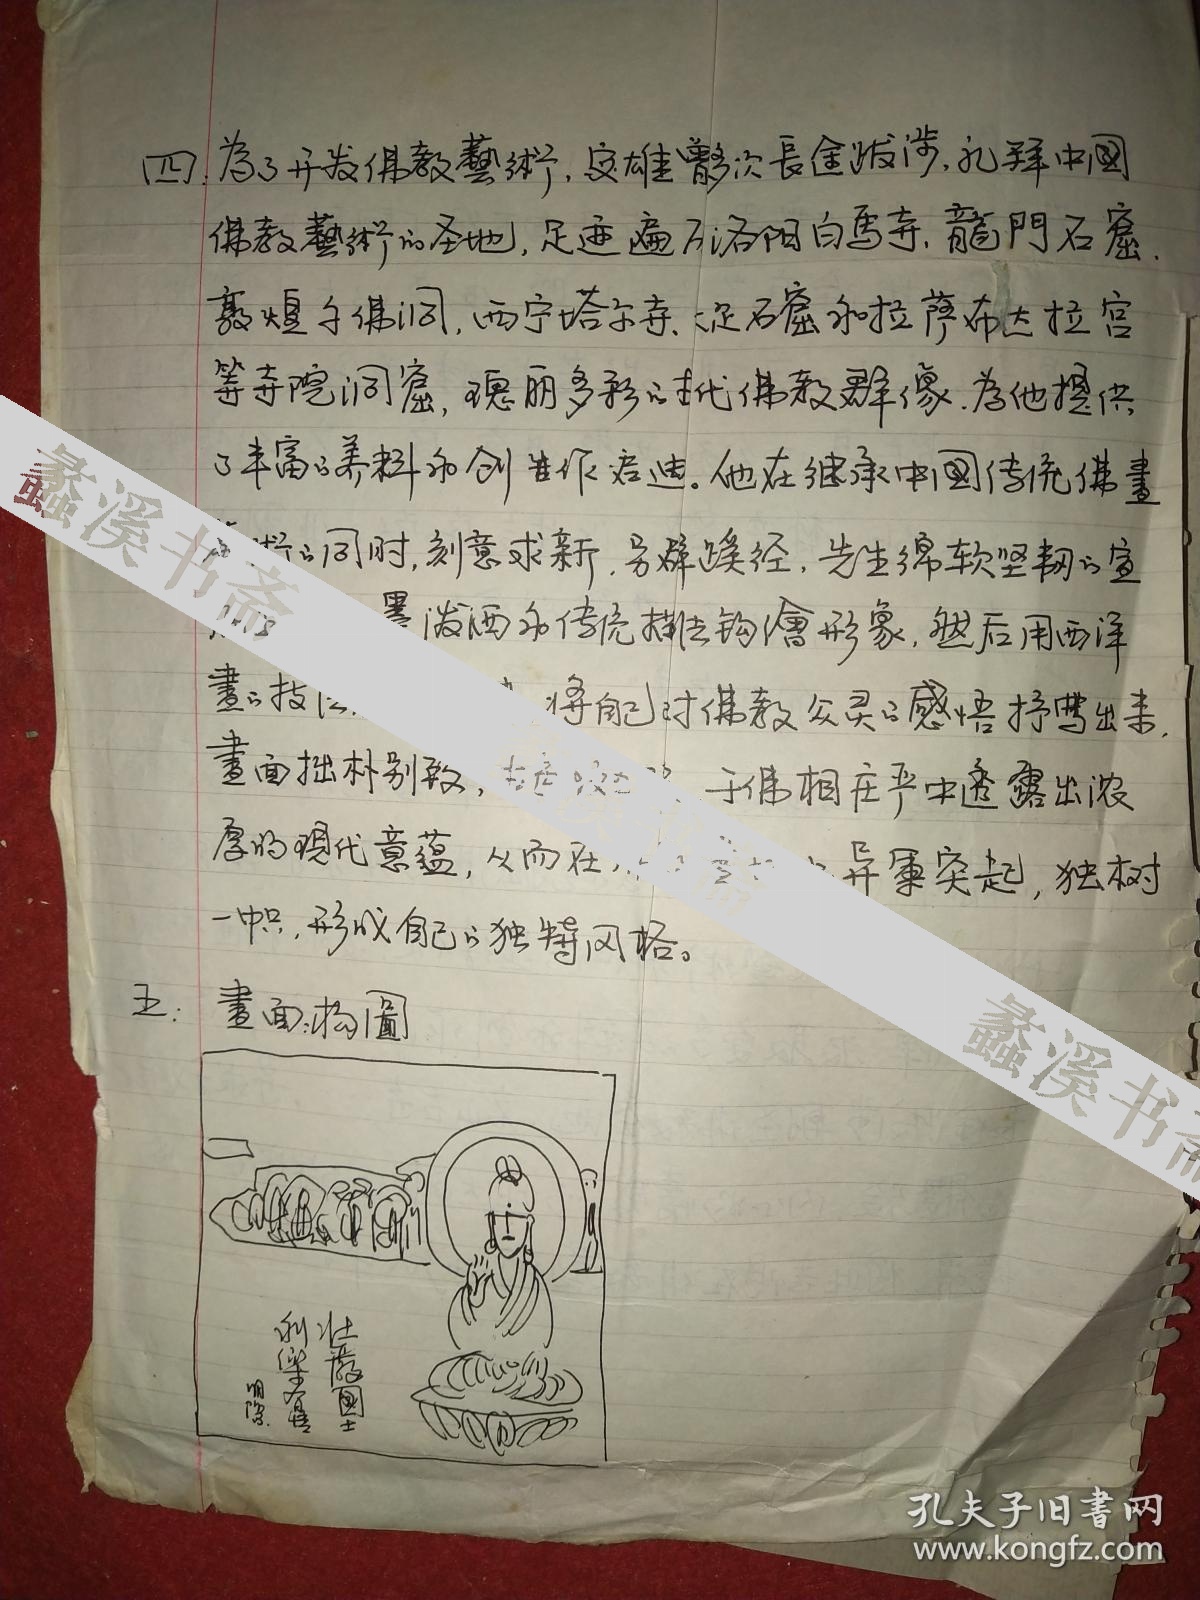 四.為了开发佛教藝術,安雄曾多次長途跋涉,礼拜中國
佛教藝術的圣地,足迹遍及洛阳白馬寺、龍門石窟、
敦煌千佛洞,西宁塔尔寺、大足石窟和拉萨布达拉宫
等寺院洞窟,瑰丽多彩的古代佛教群像,為他提供
了丰富的养料和创作启迪。他在继承中國传统佛畫
術的同时,刻意求新,另辟蹊径,先生绵软坚韧的宣
墨泼洒和传统描法钩繪形象,然后用西洋
畫的技法 将自己对佛教 灵的感悟抒 出来,
畫面拙朴别致, 于佛相庄严中透露出浓
厚的现代意蕴,从而在 异軍突起,独树
一帜,形成自己的独特风格。
五: 畫面构圖
壮嚴國土
利樂有情
明除
蠡溪书斋
蠡溪书斋
孔夫子旧書网
www.kongfz.com